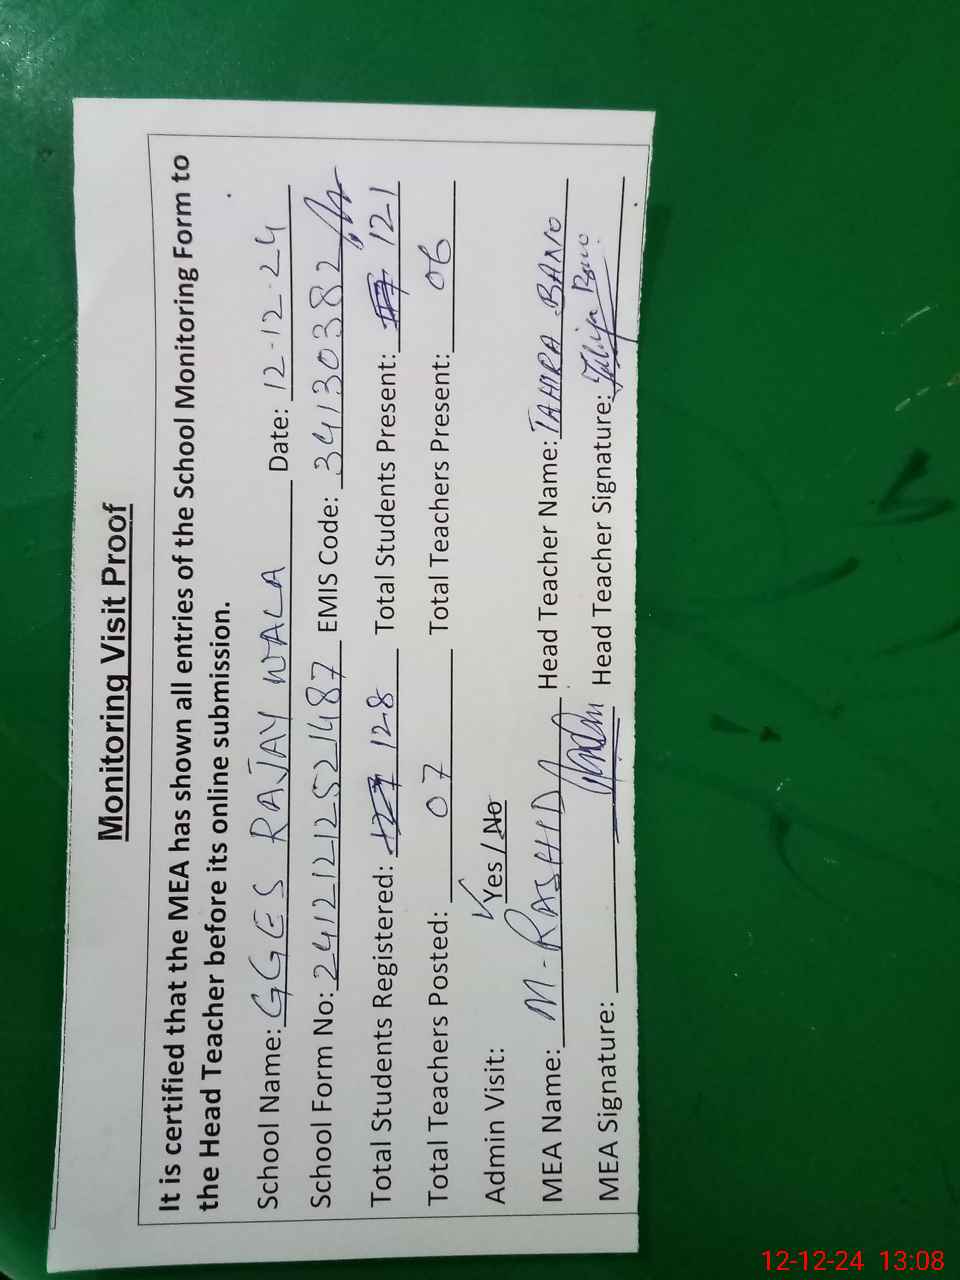 Monitoring Visit Proof
It is certified that the MEA has shown all entries of the School Monitoring Form to
the Head Teacher before its online submission.
School Name: GGES RAJAY WALA Date: 12-12-24
School Form No: 24121212521487 EMIS Code: 34130382
Total Students Registered: 127 128 Total Students Present: 121
Total Teachers Posted: 07 Total Teachers Present: 06
Admin Visit: Yes / No
MEA Name: M-RASHID Head Teacher Name: TAHIRA BANO
MEA Signature: Head Teacher Signature: Bano
12-12-24 13:08